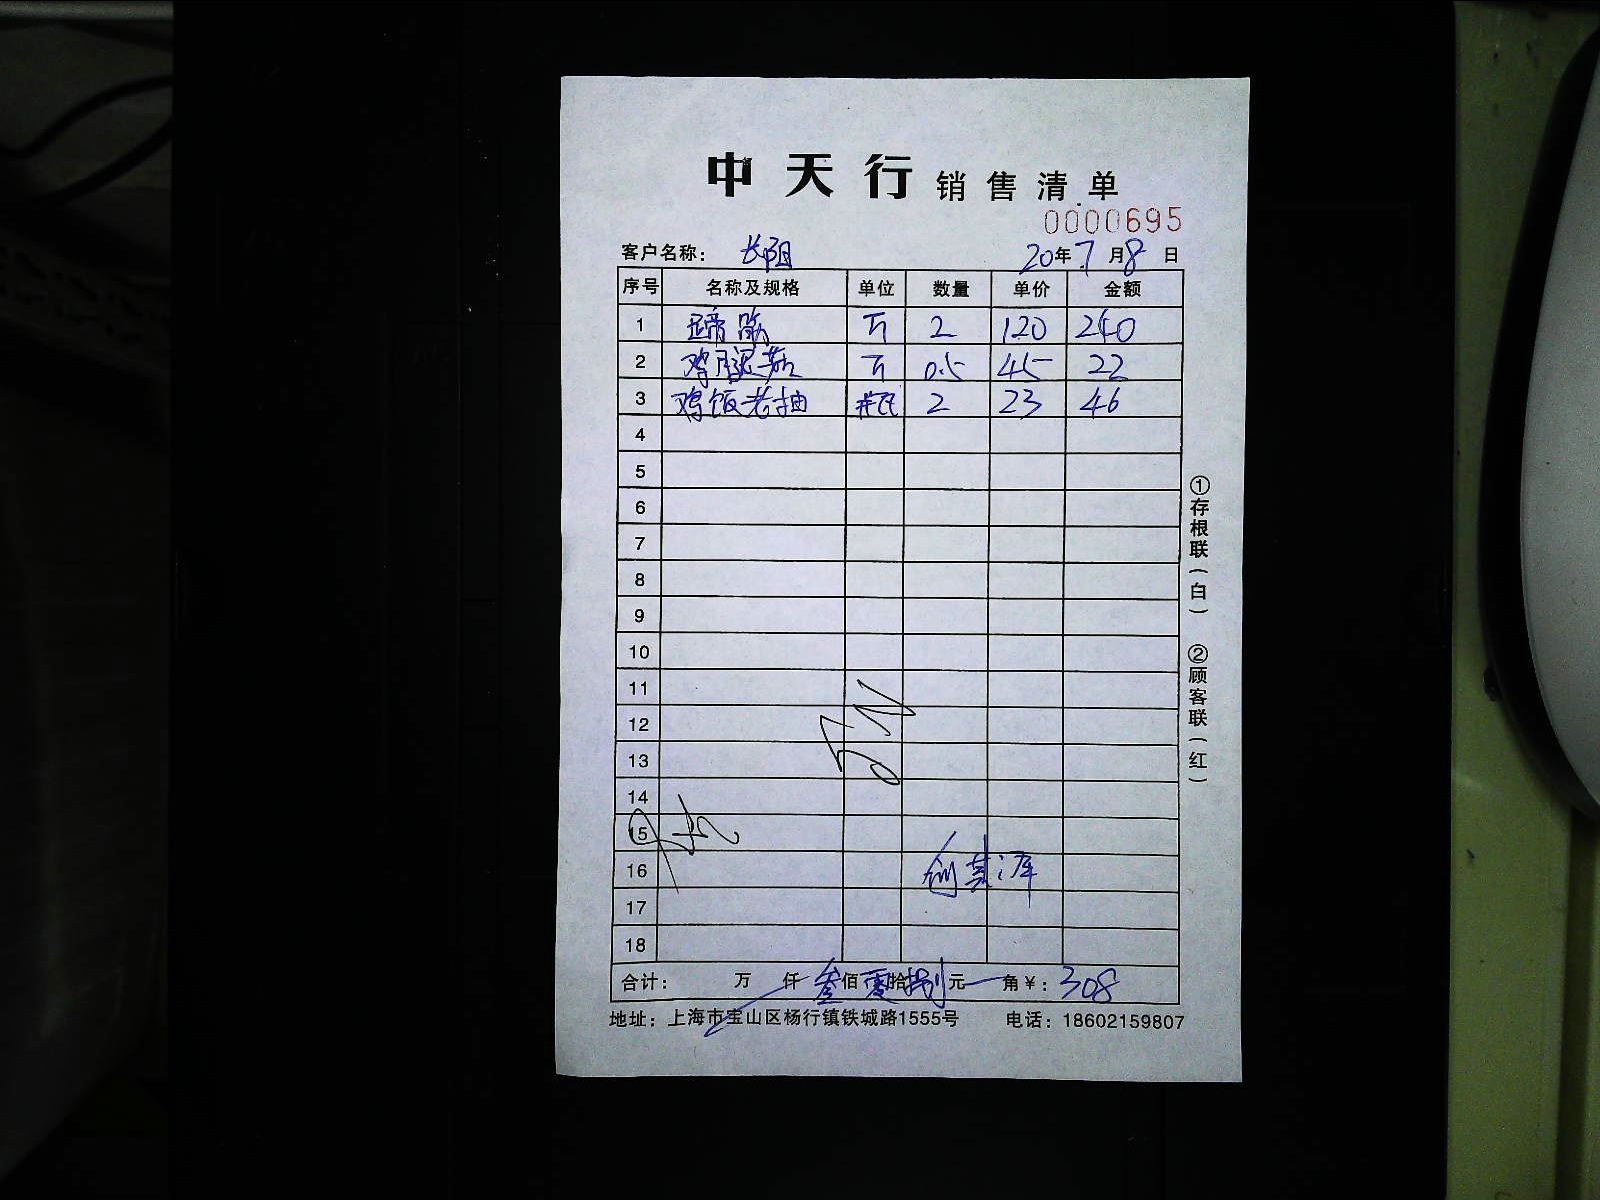 中天行 销售清单
0000695
客户名称： 长阳 20年7月8日
序号 名称及规格 单位 数量 单价 金额
1 蹄筋 斤 2 120 240
2 鸡腿菇 斤 0.5 45 22
3 鸡饭老抽 瓶 2 23 46
4
5
6
7
8
9
10
11
12
13
14
15
16
17
18
合计： 万 仟 叁佰零拾捌元 角￥：308
地址：上海市宝山区杨行镇铁城路1555号 电话：18602159807
①存根联（白） ②顾客联（红）